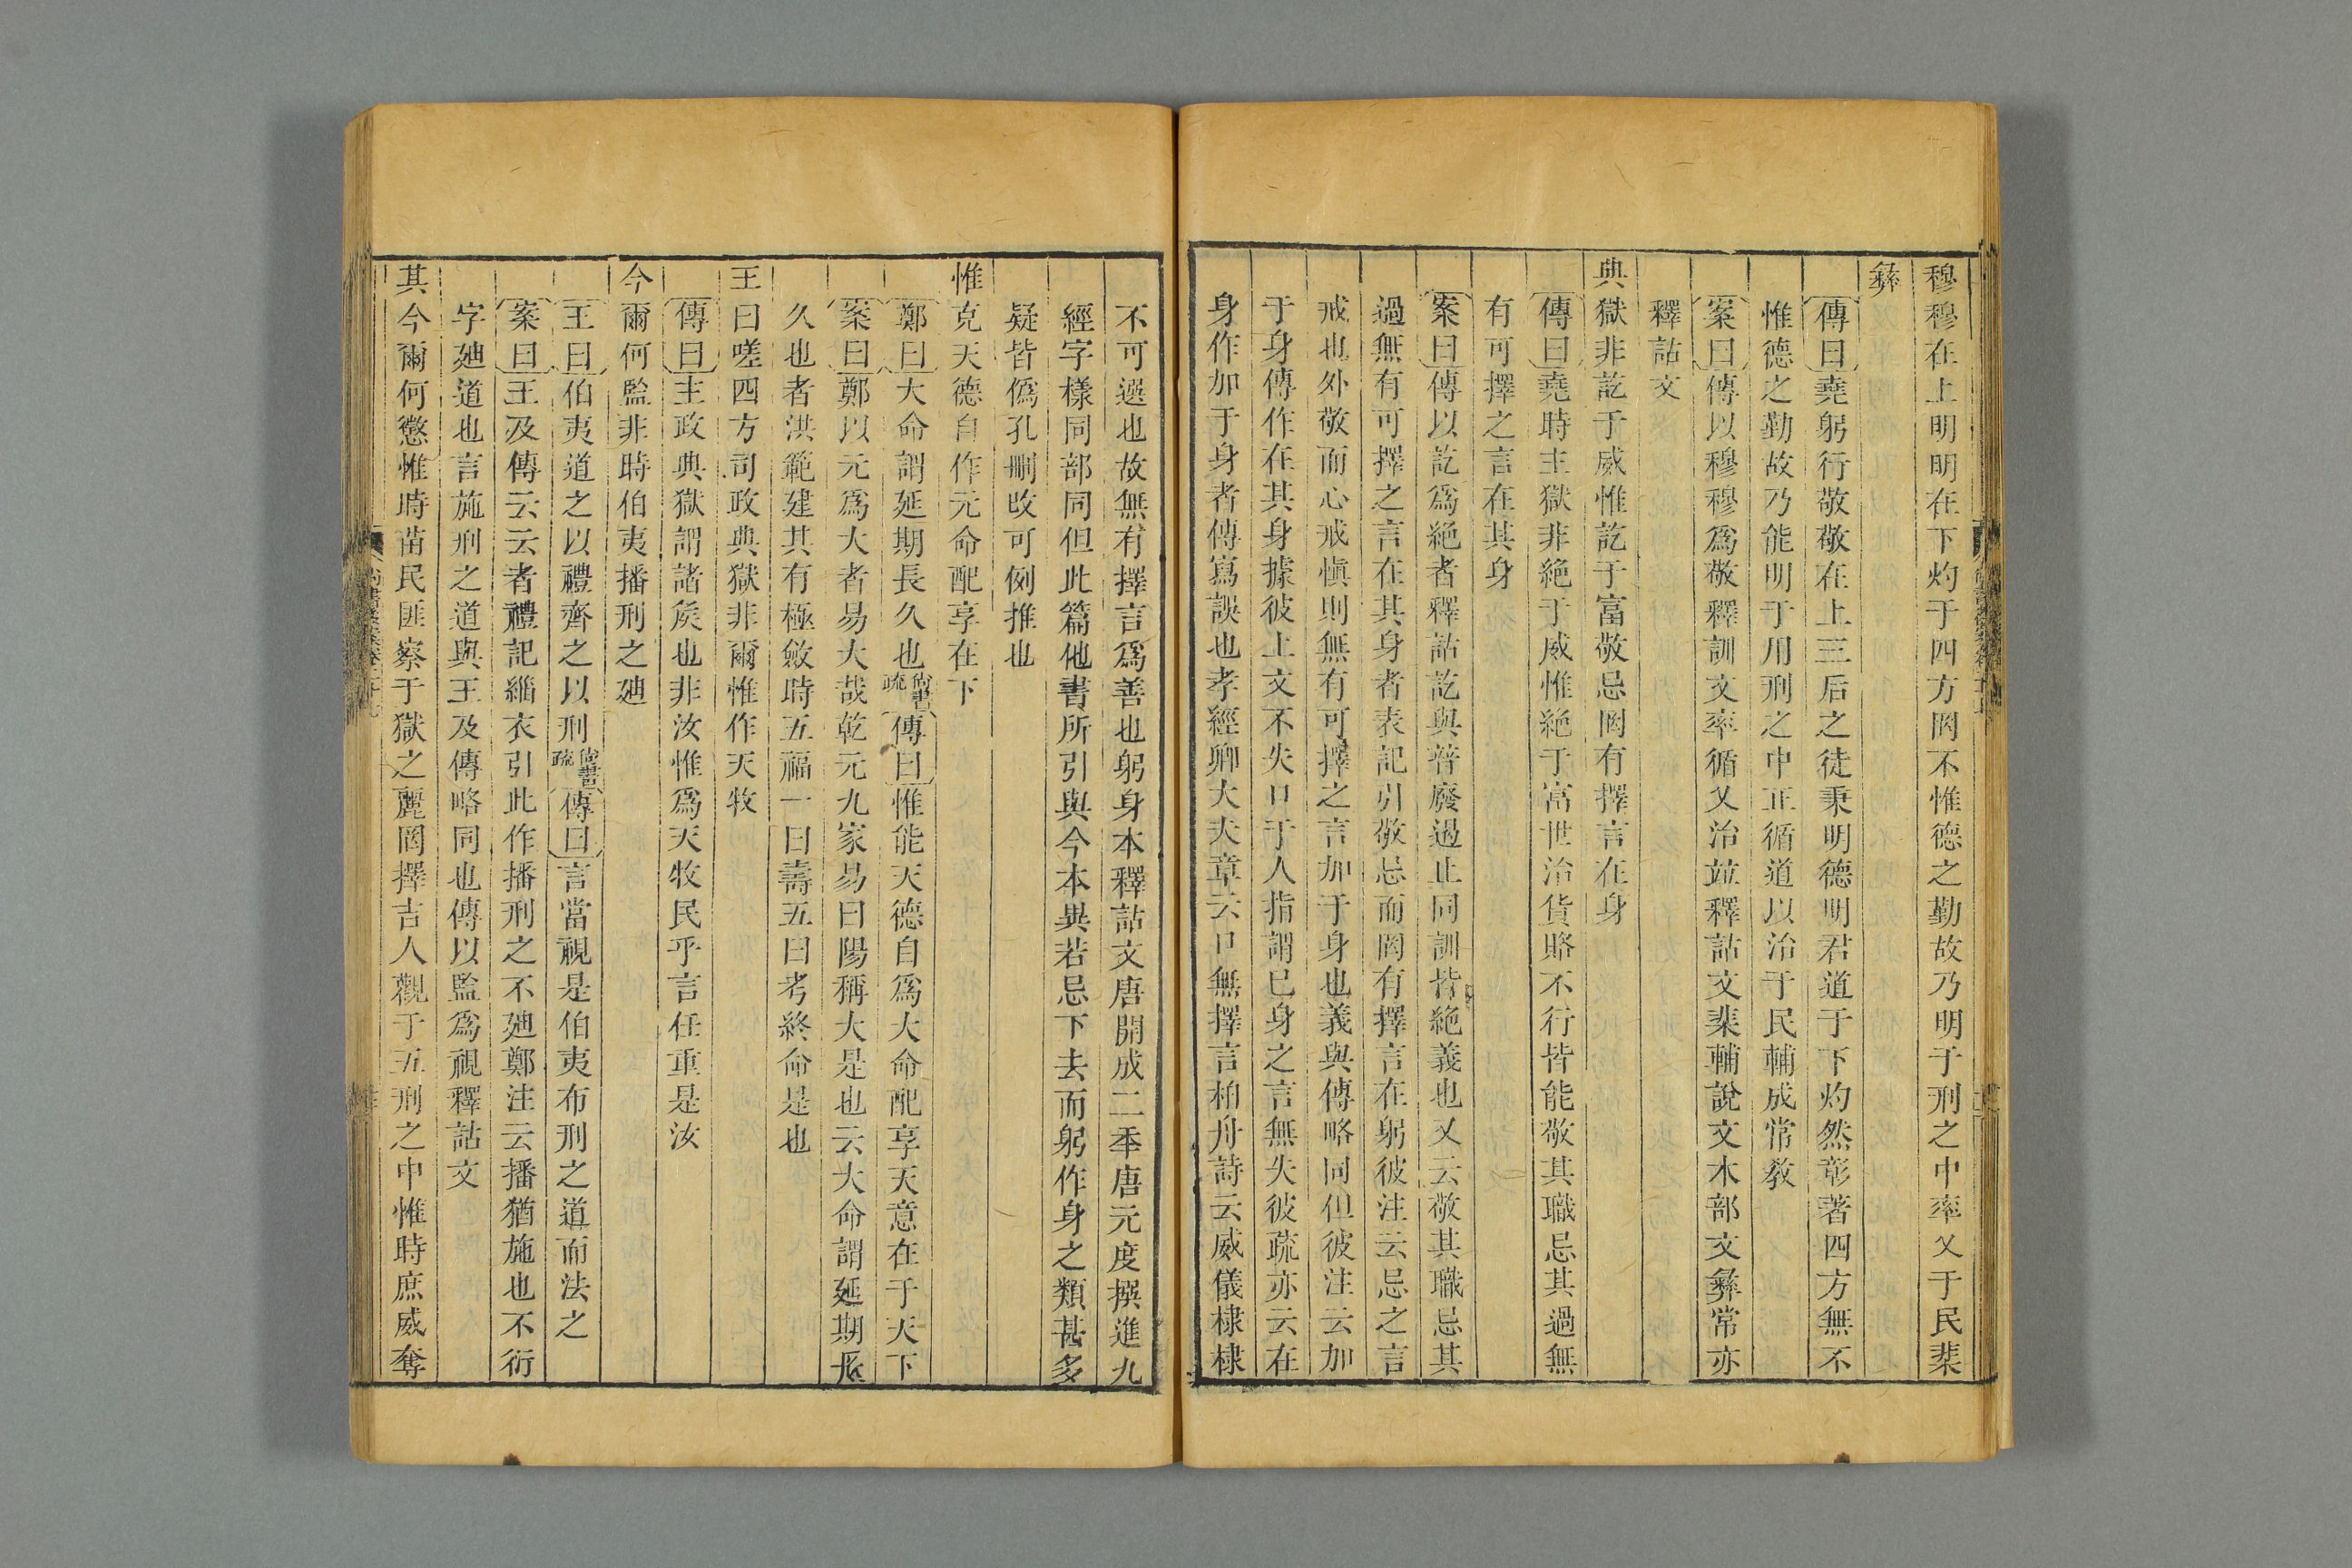 穆穆在上明明在下灼于四方罔不惟德之勤故乃明于刑之中率乂于民棐
彝
傳曰堯躬行敬敬在上三后之徒秉明德明君道于下灼然彰著四方無不
惟德之勤故乃能明于用刑之中正循道以治于民輔成常教
案曰傳以穆穆爲敬釋訓文率循乂治竝釋詁文棐輔說文木部文彝常亦
釋詁文
典獄非訖于威惟訖于富敬忌罔有擇言在身
傳曰堯時主獄非絕于威惟絕于富世治貨賂不行皆能敬其職忌其過無
有可擇之言在其身
案曰傳以訖爲絕者釋詁訖與替廢過止同訓皆絕義也又云敬其職忌其
過無有可擇之言在其身者表記引敬忌而罔有擇言在躬彼注云忌之言
戒也外敬而心戒愼則無有可擇之言加于身也義與傳略同但彼注云加
于身傳作在其身據彼上文不失口于人指謂已身之言無失彼疏亦云在
身作加于身者傳寫誤也孝經卿大夫章云口無擇言柏舟詩云威儀棣棣
不可選也故無有擇言爲善也躬身本釋詁文唐開成二年唐元度撰進九
經字樣同部同但此篇他書所引與今本異若忌下去而躬作身之類甚多
疑皆僞孔刪改可例推也
惟克天德自作元命配享在下
鄭曰大命謂延期長久也尙書疏傳曰惟能天德自爲大命配享天意在于天下
案曰鄭以元爲大者易大哉乾元九家易曰陽稱大是也云大命謂延期長
久也者洪範建其有極斂時五福一曰壽五曰考終命是也
王曰嗟四方司政典獄非爾惟作天牧
傳曰主政典獄謂諸侯也非汝惟爲天牧民乎言任重是汝
今爾何監非時伯夷播刑之廸
王曰伯夷道之以禮齊之以刑尙書疏傳曰言當視是伯夷布刑之道而法之
案曰王及傳云云者禮記緇衣引此作播刑之不廸鄭注云播猶施也不衍
字廸道也言施刑之道與王及傳略同也傳以監爲視釋詁文
其今爾何懲惟時苗民匪察于獄之麗罔擇吉人觀于五刑之中惟時庶威奪